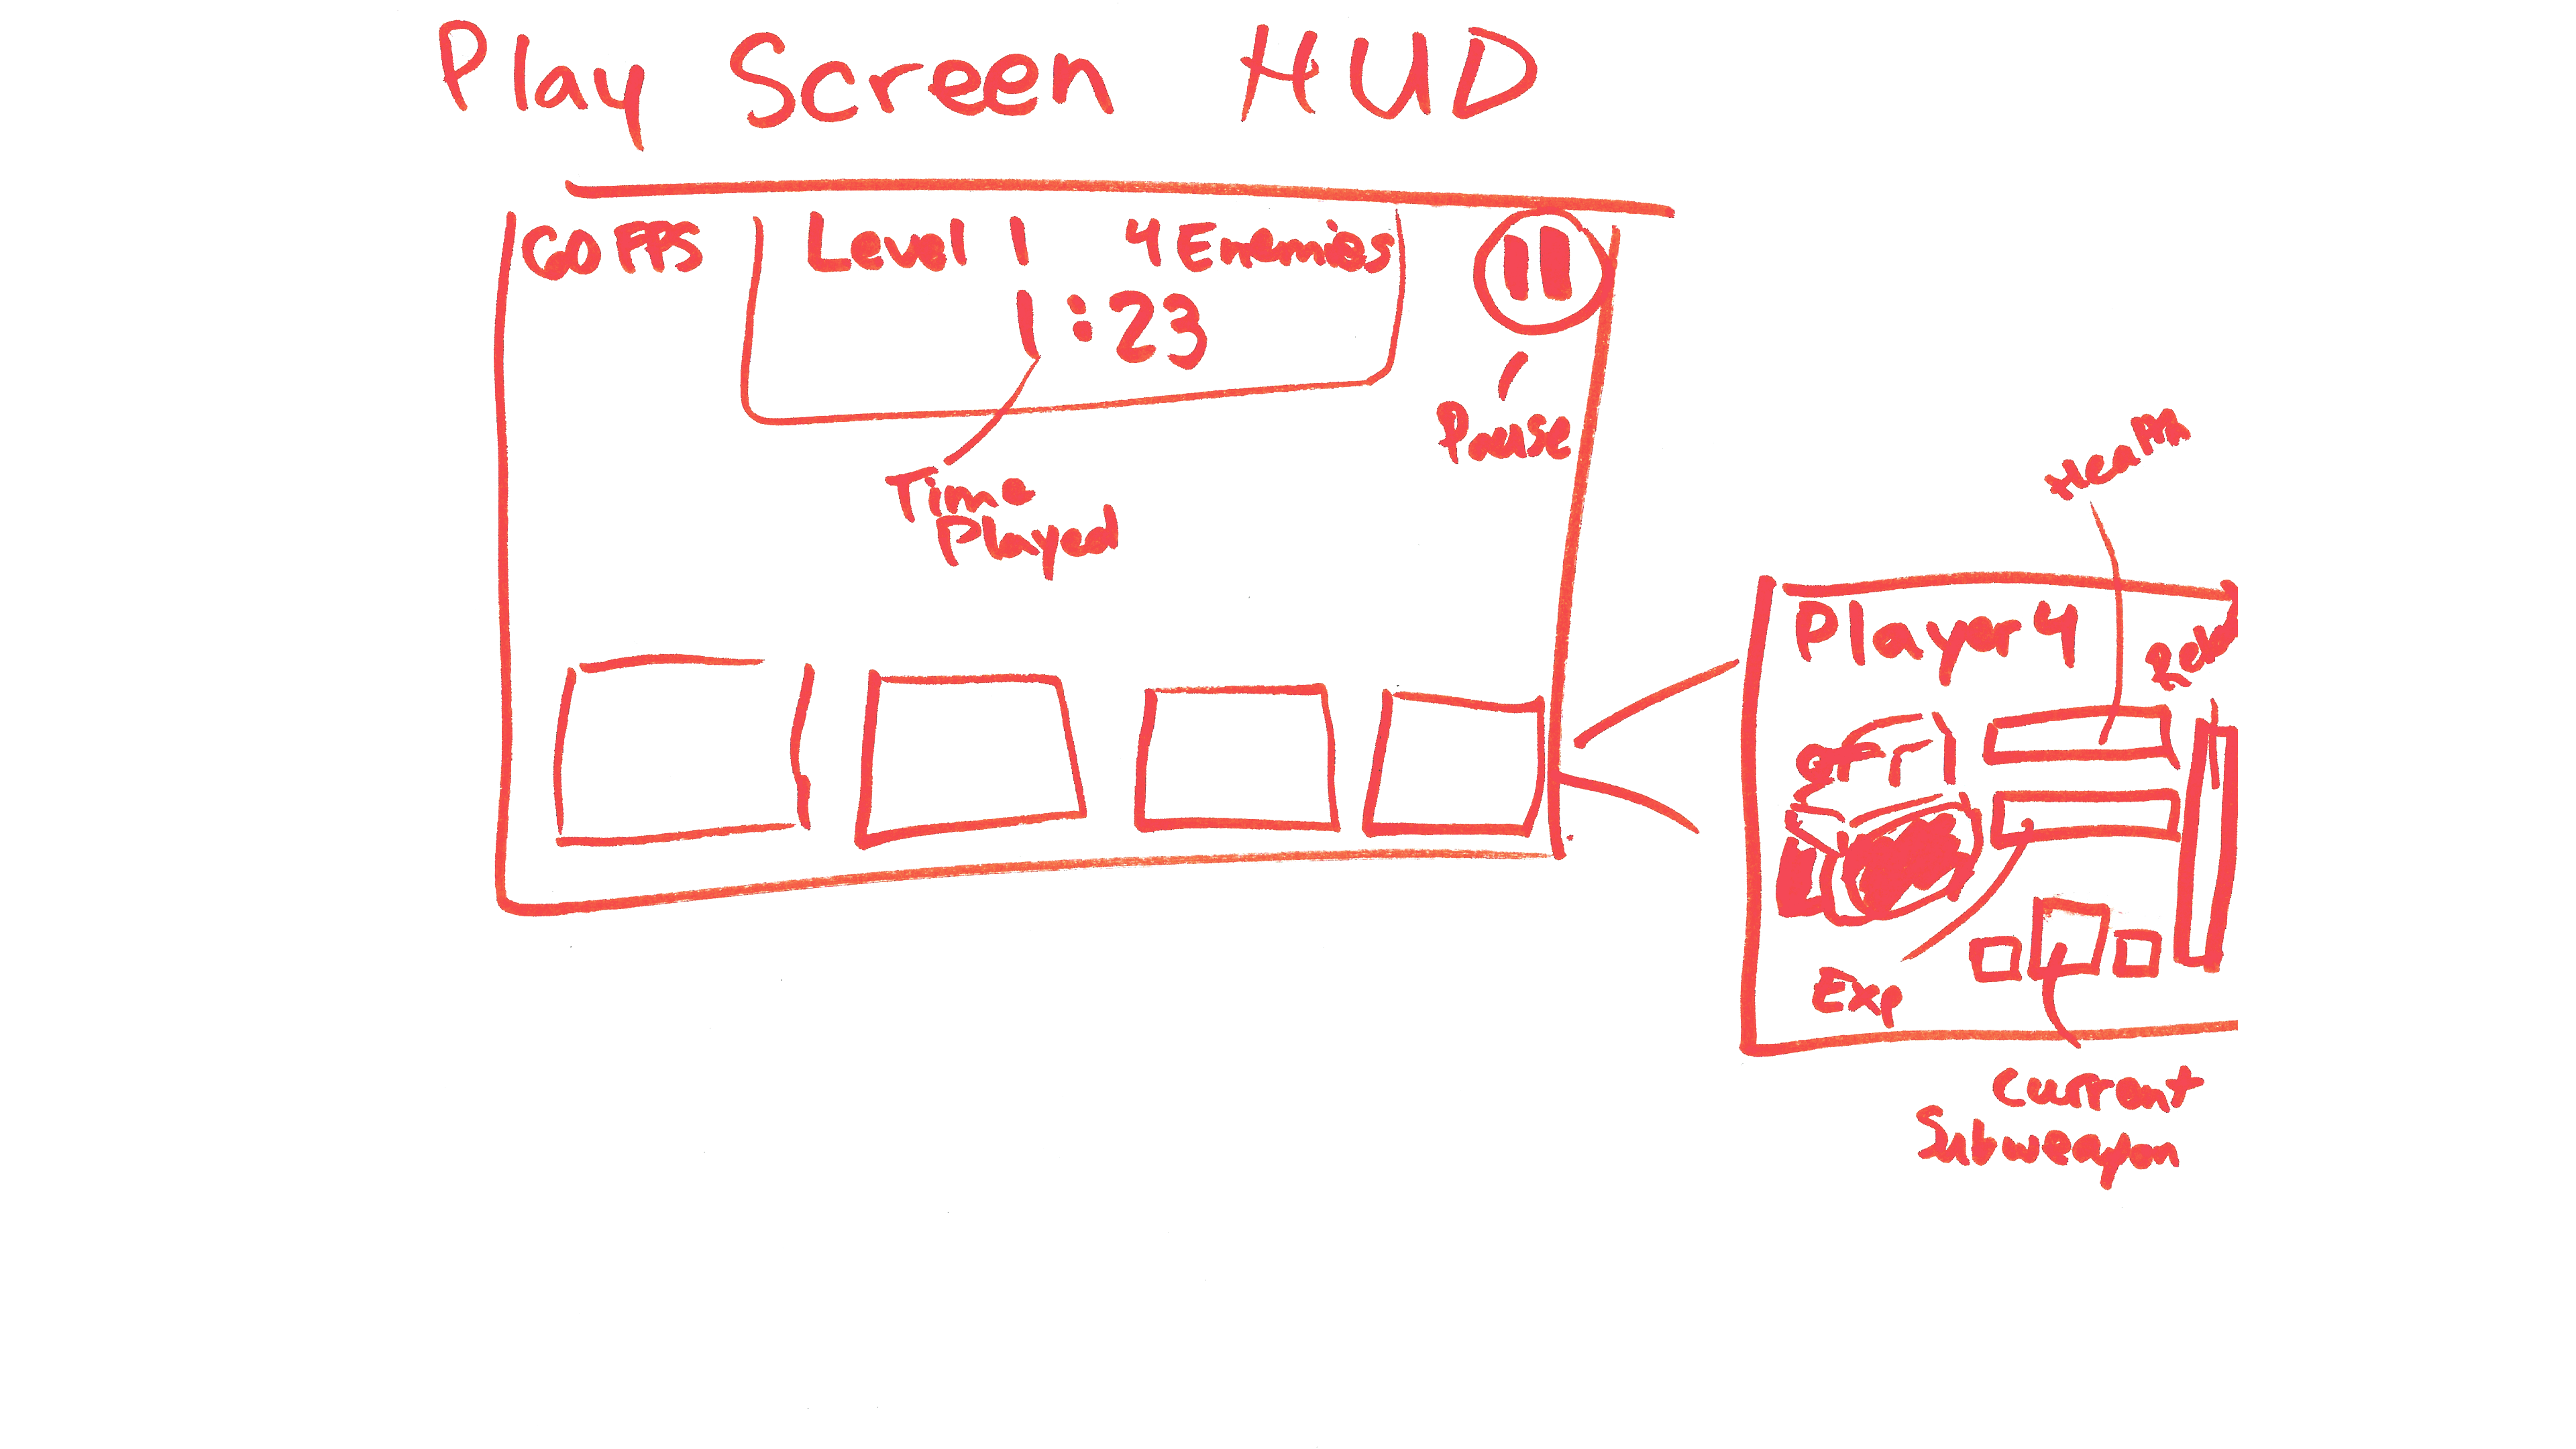 Play Screen HUD
60 FPS
Level 1 4 Enemies
1:23
Time
Played
Pause
Health
Player 4
Exp
Current
Subweapon